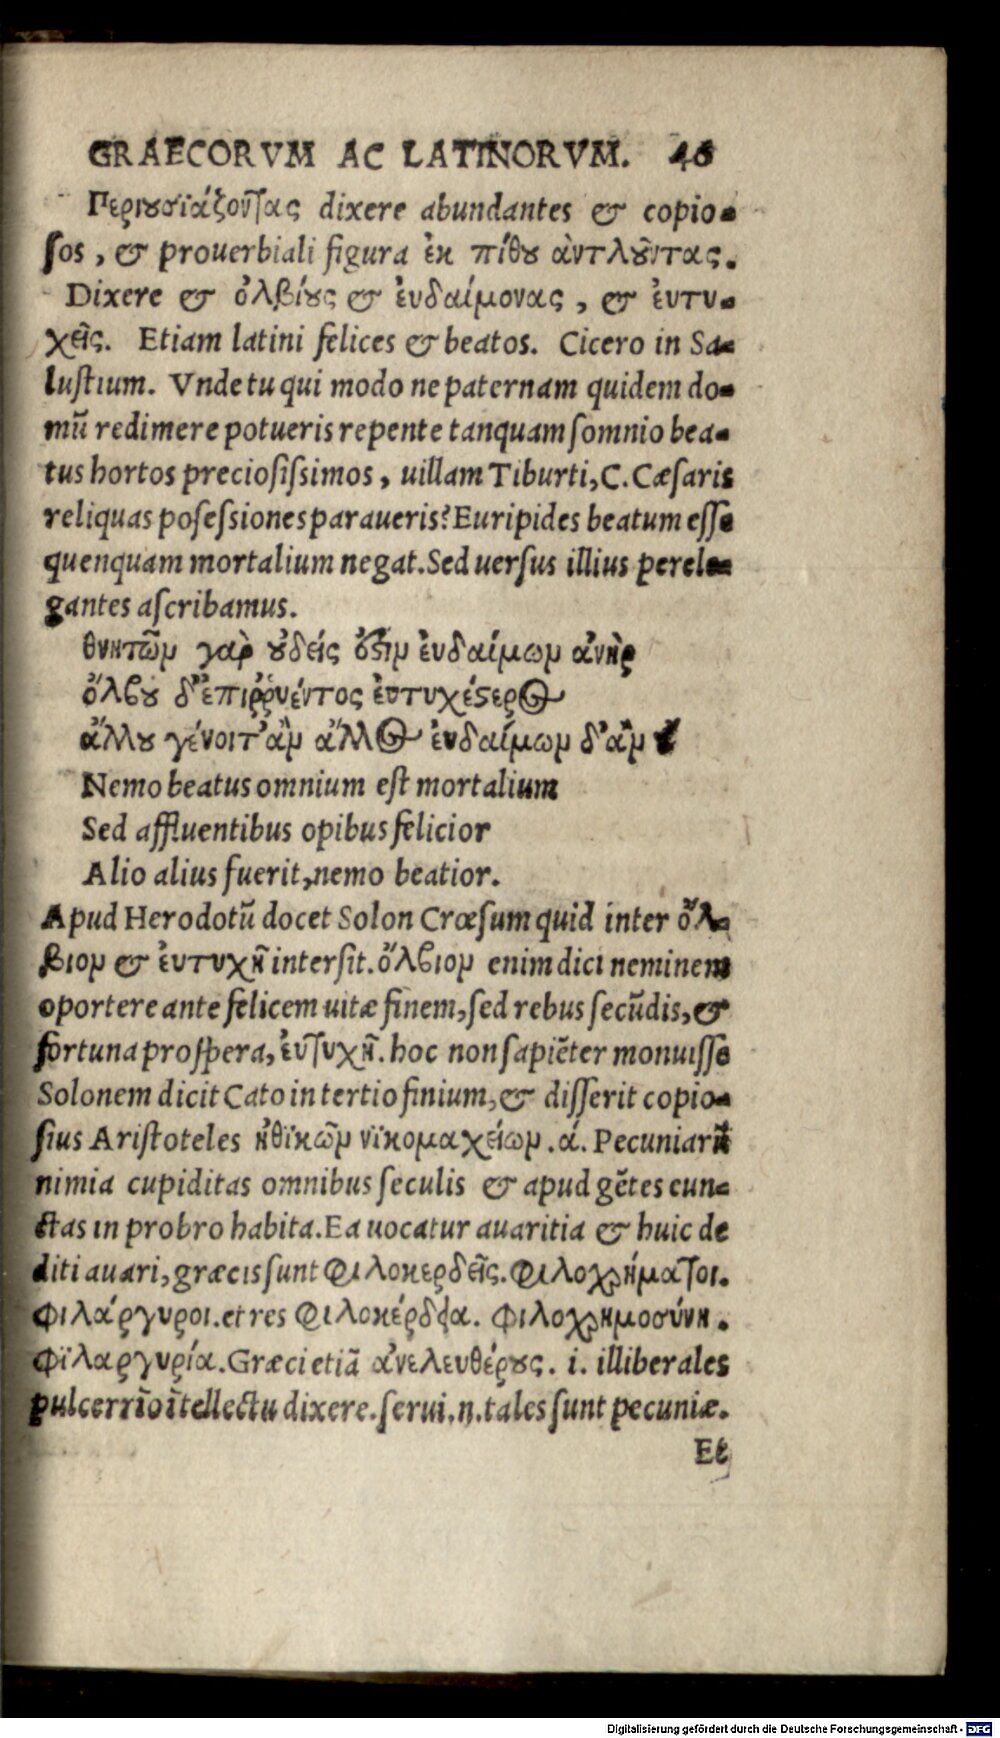 GRAECORVM AC LATINORVM. 46
Περιουσιάζοντας dixere abundantes & copio-
ſos, & prouerbiali figura ἐκ πίθου ἀντλοῦντας.
Dixere & ὀλβίους & ἐυδαίμονας, & ἐυτυ-
χεῖς. Etiam latini felices & beatos. Cicero in Sa-
luſtium. Vnde tu qui modo ne paternam quidem do-
mū redimere potueris repente tanquam ſomnio bea-
tus hortos precioſiſsimos, uillam Tiburti, C. Cæſaris
reliquas poſeſsiones paraueris? Euripides beatum eſſe
quenquam mortalium negat. Sed uerſus illius perele-
gantes aſcribamus.
θνητῶν γαρ ουδείς ὅστιν ἐυδαίμων ἀνὴρ
ὄλβου δ' ἐπιῤῥυέντος ἐυτυχέστερος
ἄλλου γένοιτ' ἂν ἄλλος ἐυδαίμων δ' ἂν
Nemo beatus omnium eſt mortalium
Sed affluentibus opibus felicior
Alio alius fuerit, nemo beatior.
Apud Herodotū docet Solon Crœſum quid inter ὄλ-
βιον & ἐυτυχῆ interſit. ὄλβιον enim dici neminem
oportere ante felicem uitæ finem, ſed rebus ſecūdis, &
fortuna proſpera, ἐυτυχῆ. hoc non ſapiēter monuiſſe
Solonem dicit Cato in tertio finium, & diſſerit copio-
ſius Ariſtoteles ἠθϊκῶν νϊκομαχείων .ά. Pecuniarū
nimia cupiditas omnibus ſeculis & apud gētes cun-
ctas in probro habita. Ea uocatur auaritia & huic de
diti auari, græcis ſunt Φιλοκερδεῖς. Φιλοχρήματοι.
Φιλάργυροι. et res Φιλοκέρδεια. Φιλοχρημοσύνη.
Φϊλαργυρία. Græci etiā ἀνελευθέρους. i. illiberales
pulcerrīo ītellectu dixere. ſerui. n. tales ſunt pecuniæ.
Et
Digitalisierung gefördert durch die Deutsche Forschungsgemeinschaft - DFG